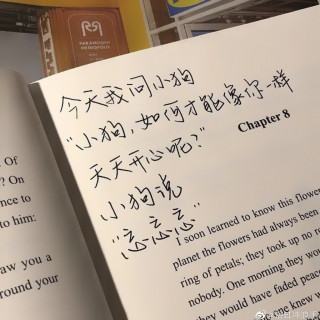 RSP
PARAMOUNT
METROPOLIS
今天我问小狗
"小狗,如何才能像你一样
天天开心呢?"
小狗说
"忘忘忘"
Of
? On
ence to
to him:
aw you a
around your
Chapter 8
I soon learned to know this flower
planet the flowers had always been
ring of petals; they took up no ro
nobody. One morning they wou
they would have faded peace
one knew w